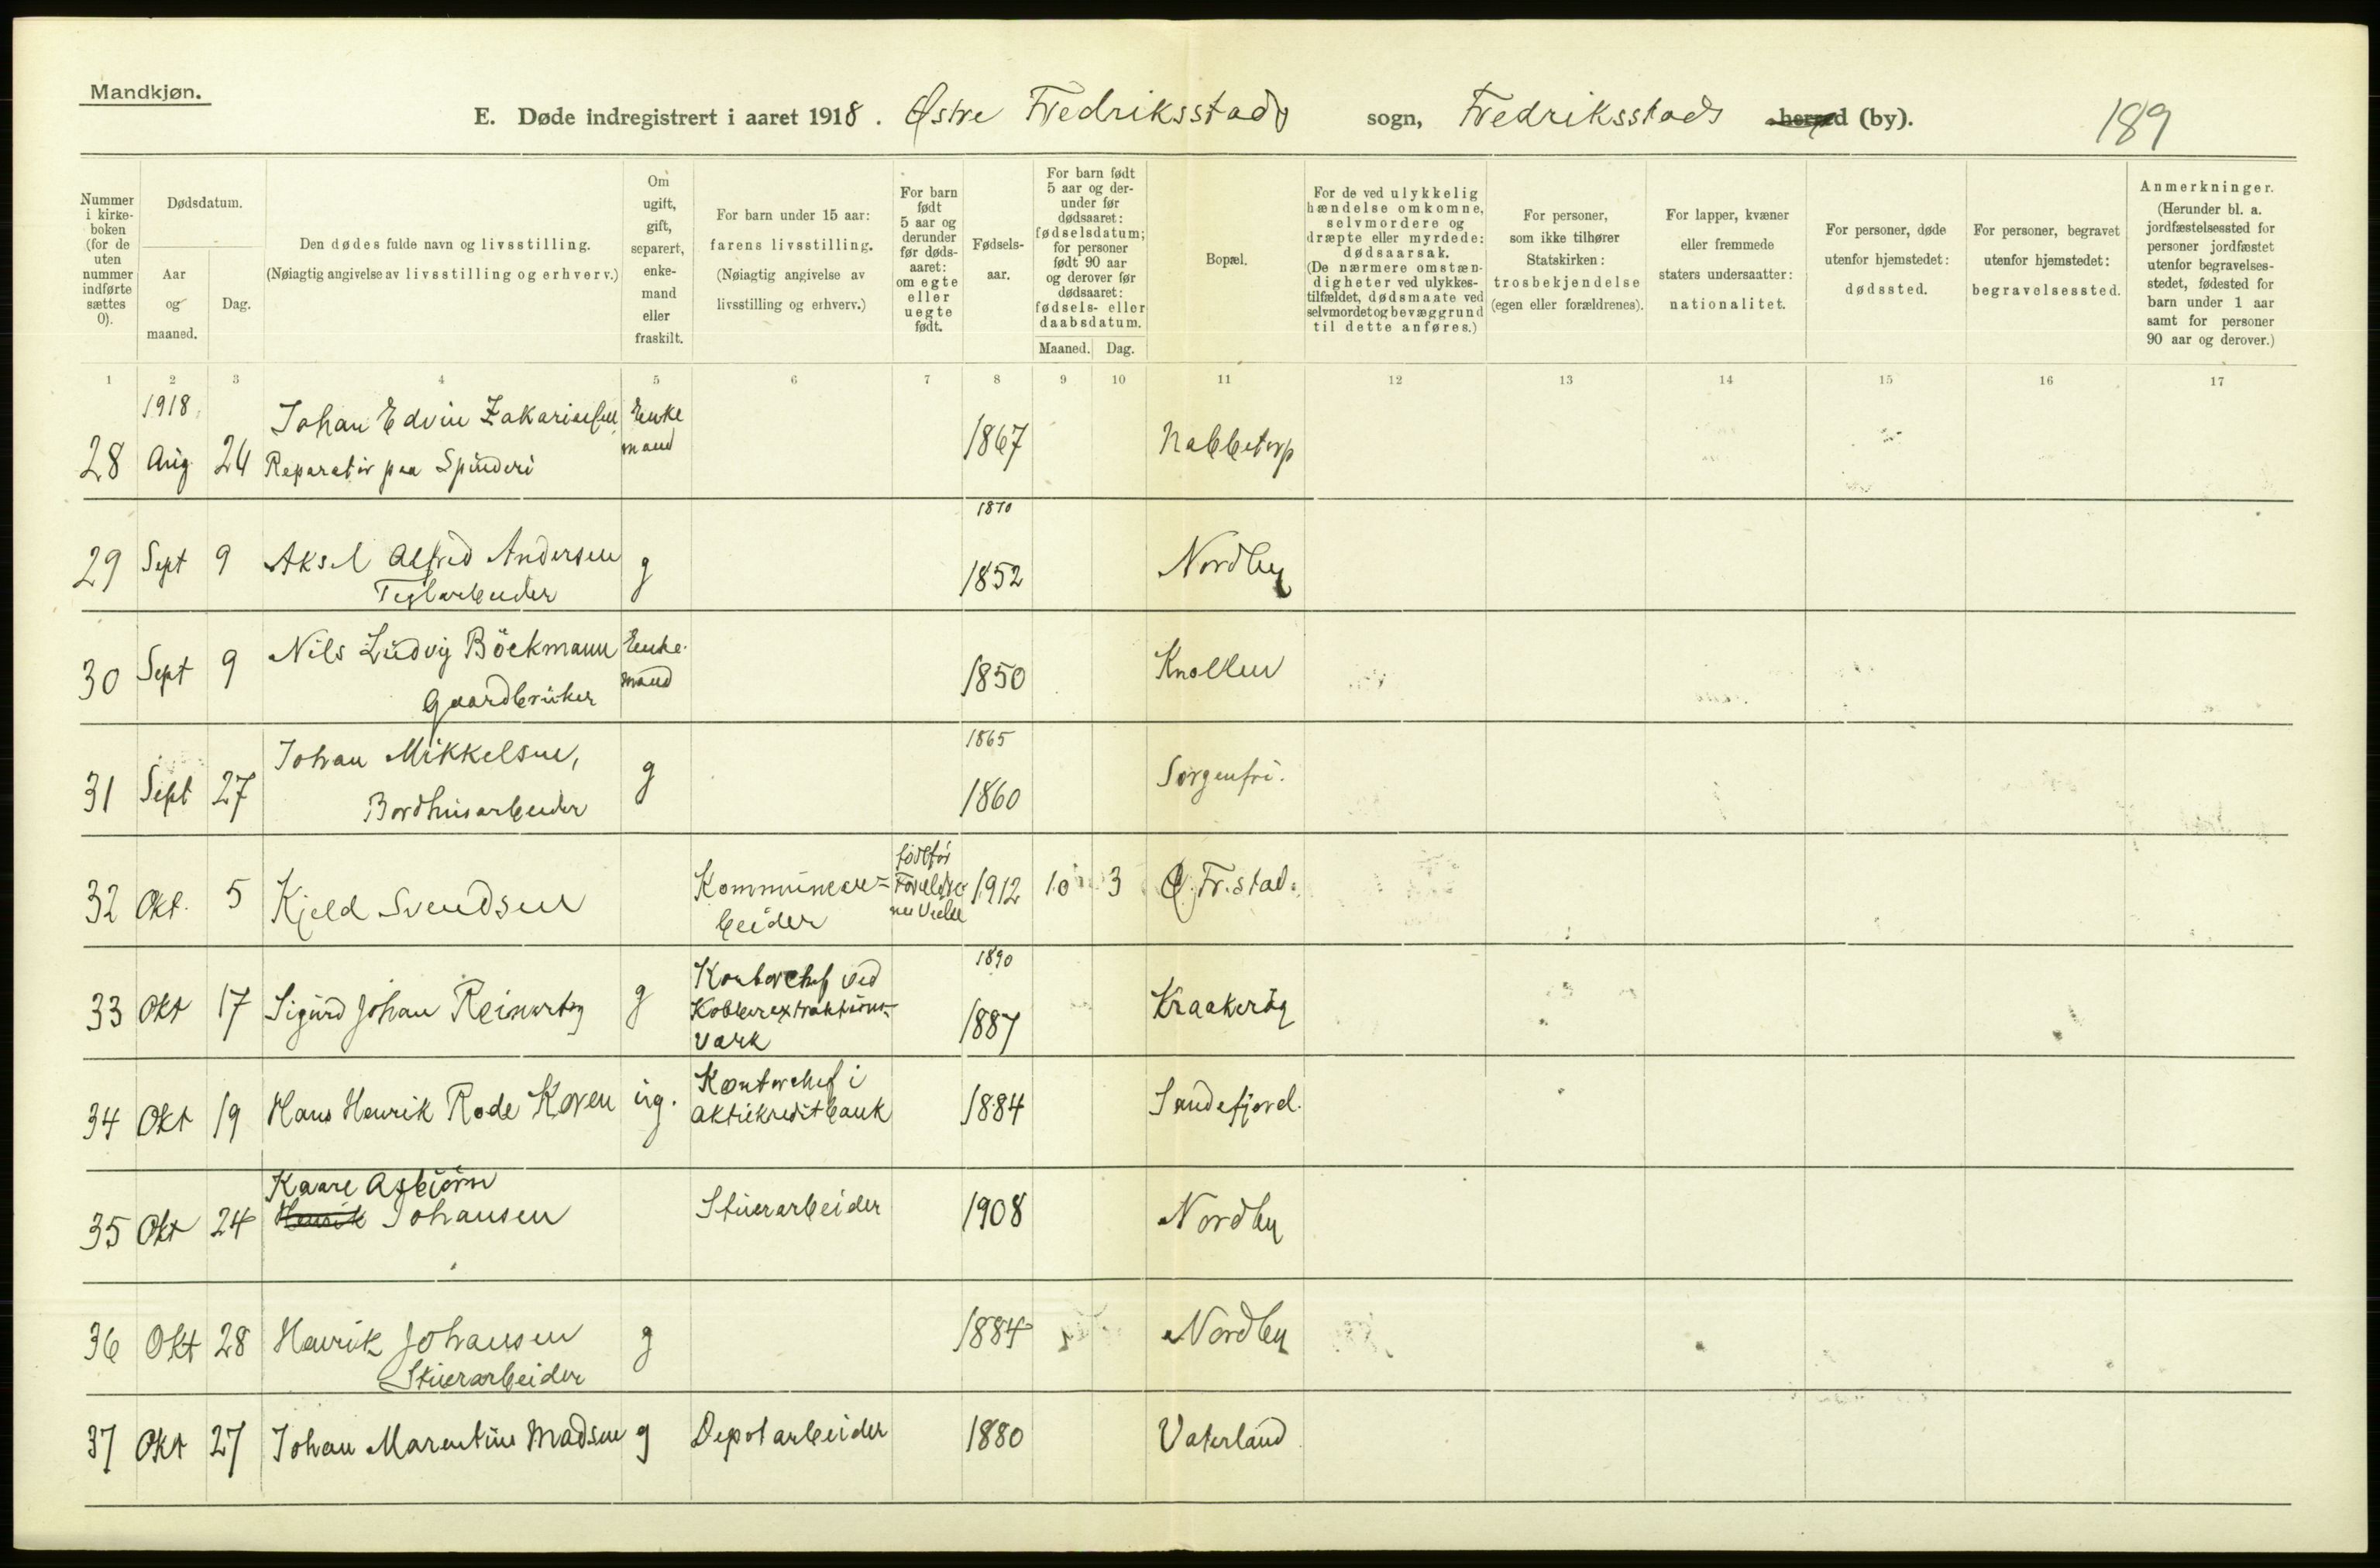 Mandkjøn.
E. Døde indregistrert i aaret 1918. Østre Fredriksstads sogn, Fredriksstads herred (by). 189
Nummer i kirke- boken (for de uten nummer indførte sættes 0).
Dødsdatum.
Aar og maaned.
Dag.
Den dødes fulde navn og livsstilling. (Nøiagtig angivelse av livsstilling og erhverv.)
Om ugift, gift, separert, enke- mand eller fraskilt.
For barn under 15 aar: farens livsstilling. (Nøiagtig angivelse av livsstilling og erhverv.)
For barn født 5 aar og derunder før døds- aaret: om egte eller uegte født.
Fødsels- aar.
For barn født 5 aar og der- under før dødsaaret: fødselsdatum; for personer født 90 aar og derover før dødsaaret: fødsels- eller daabsdatum.
Maaned. Dag.
Bopæl.
For de ved ulykkelig hændelse omkomne, selvmordere og dræpte eller myrdede: dødsaarsak. (De nærmere omstæn- digheter ved ulykkes- tilfældet, dødsmaate ved selvmordet og bevæggrund til dette anføres.)
For personer, som ikke tilhører Statskirken: trosbekjendelse (egen eller forældrenes).
For lapper, kvæner eller fremmede staters undersaatter: nationalitet.
For personer, døde utenfor hjemstedet: dødssted.
For personer, begravet utenfor hjemstedet: begravelsessted.
Anmerkninger. (Herunder bl. a. jordfæstelsessted for personer jordfæstet utenfor begravelses- stedet, fødested for barn under 1 aar samt for personer 90 aar og derover.)
1 2 3 4 5 6 7 8 9 10 11 12 13 14 15 16 17
1918
28 Aug 24 Johan Edvin Zakariassen Enke 1867 Nabbetorp
Reparatør paa Spinderi mand
1870
29 Sept 9 Aksel Alfred Andersen g 1852 Nordby
Teglarbeider
30 Sept 9 Nils Ludvig Böckmann Enke- 1850 Knollen
Gaardbruker mand
1865
31 Sept 27 Johan Mikkelsen, g 1860 Sorgenfri.
Bordhusarbeider
32 Okt. 5 Kjeld Svendsen Kommunear= født før Forældre- nes Vielse 1912 10 3 Ø. Fr.stad.
beider
1890
33 Okt 17 Sigurd Johan Reinertsen g Kontorchef ved 1887 Kraakerøy
Kobberextraktions=
værk
34 Okt 19 Hans Henrik Rode Koren ug. Kontorchef i 1884 Sandefjord.
Aktiekreditbank
Kaare Asbjørn
35 Okt 24 Henrik Johansen Stuerarbeider 1908 Nordby
36 Okt 28 Henrik Johansen g 1884 Nordby
Stuerarbeider
37 Okt 27 Johan Marentius Madsen g Depotarbeider 1880 Vaterland